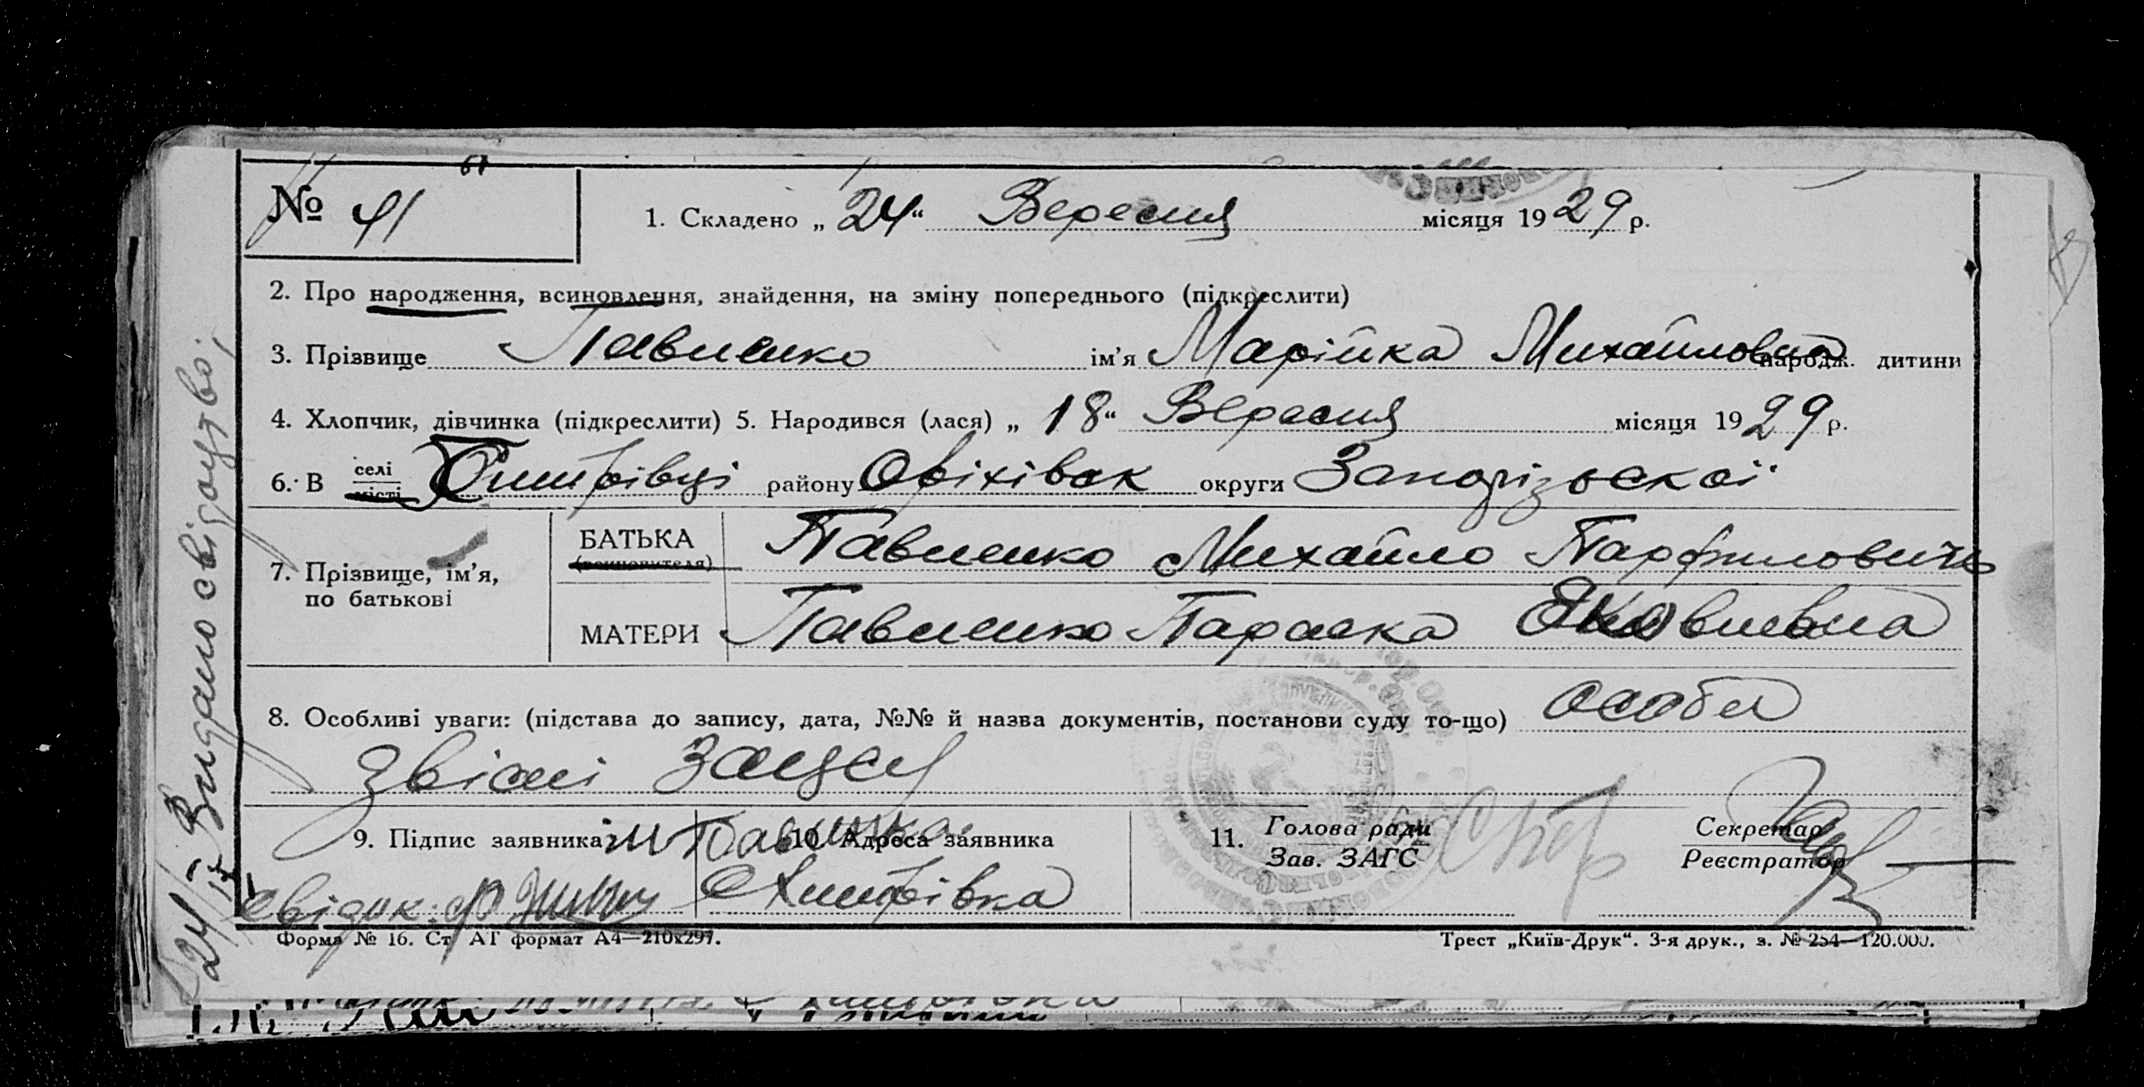 № 41
1. Складено „24“ Вересня місяця 1929 р.
2. Про народження, всиновлення, знайдення, на зміну попереднього (підкреслити)
3. Прізвище Павленко ім’я Марійка Михайловна народж. дитини
4. Хлопчик, дівчинка (підкреслити) 5. Народився (лася) „18“ Вересня місяця 1929 р.
6. В селі місті Дмитрівці району Оріхівск округи Запорізьскої
7. Прізвище, ім’я, по батькові
БАТЬКА Павленко Михайло
МАТЕРИ Павленко Параска Яковлевна
8. Особливі уваги: (підстава до запису, дата, №№ й назва документів, постанови суду то-що) особи
9. Підпис заявника 10. Адреса заявника
Свідок:
11. Голова ради
Зав. ЗАГС
Секретар
Реєстратор
Форма № 16. Ст АГ формат А4—210х297.
Трест „Київ-Друк“. 3-я друк., з. № 254—120.000.
Видано свідоцтво